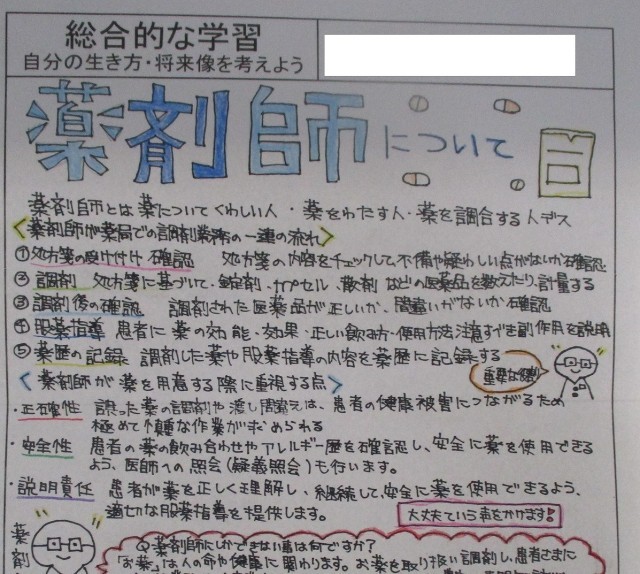 総合的な学習
自分の生き方・将来像を考えよう
薬剤師について
薬剤師とは薬についてくわしい人・薬をわたす人・薬を調合する人デス
<薬剤師が薬局での調剤業務の一連の流れ>
①処方箋の受け付け確認 処方箋の内容をチェックして不備や疑わしい点がないか確認
②調剤 処方箋に基づいて・錠剤・カプセル・散剤などの医薬品を数えたり、計量する
③調剤後の確認 調剤された医薬品が正しいか、間違いがないか確認
④服薬指導 患者に薬の効能・効果・正しい飲み方・使用方法注意すべき副作用を説明
⑤薬歴の記録 調剤した薬や服薬指導の内容を薬歴に記録する
重要な役割
<薬剤師が薬を用意する際に重視する点>
・正確性 誤った薬の調剤や渡し間違えは、患者の健康被害につながるため
極めて慎重な作業が求められる
・安全性 患者の薬の飲み合わせやアレルギー歴を確認し、安全に薬を使用できる
よう、医師への照会(疑義照会)も行います。
・説明責任 患者が薬を正しく理解し、継続して、安全に薬を使用できるよう、
適切な服薬指導を提供します。
大丈夫ていう声をかけます!
薬剤
Q薬剤師にしかできない事は何ですか?
「お薬」は人の命や健康に関わります。お薬を取り扱い調剤し、患者さまに